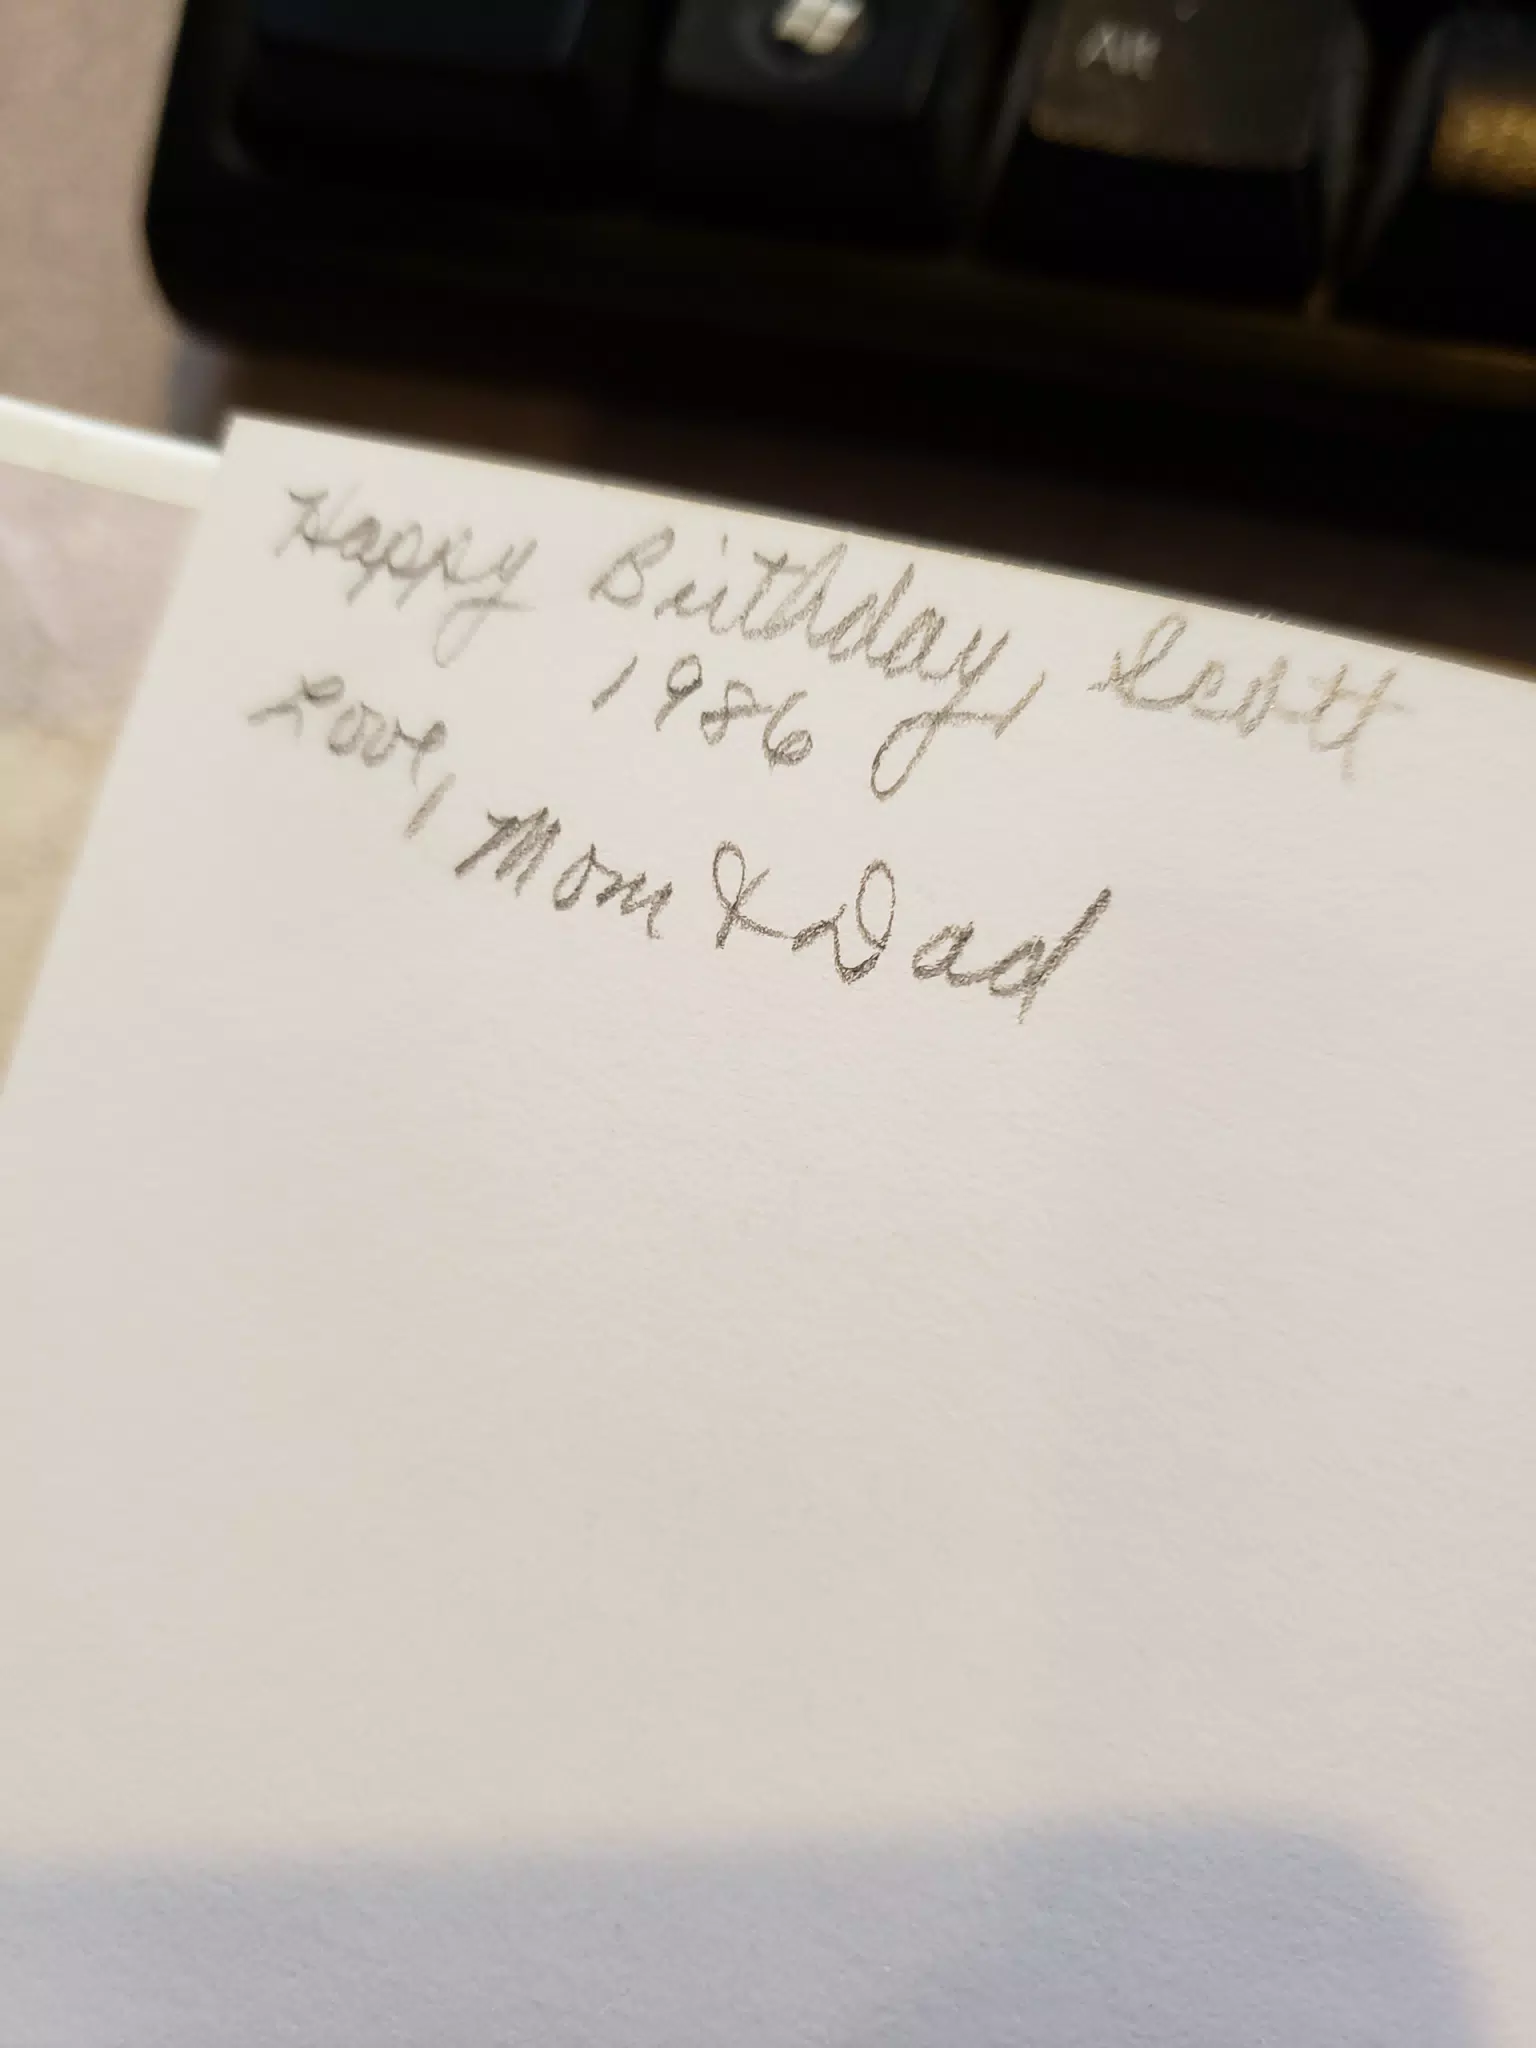 Alt
Happy Birthday, Scott
1986
Love, Mom & Dad